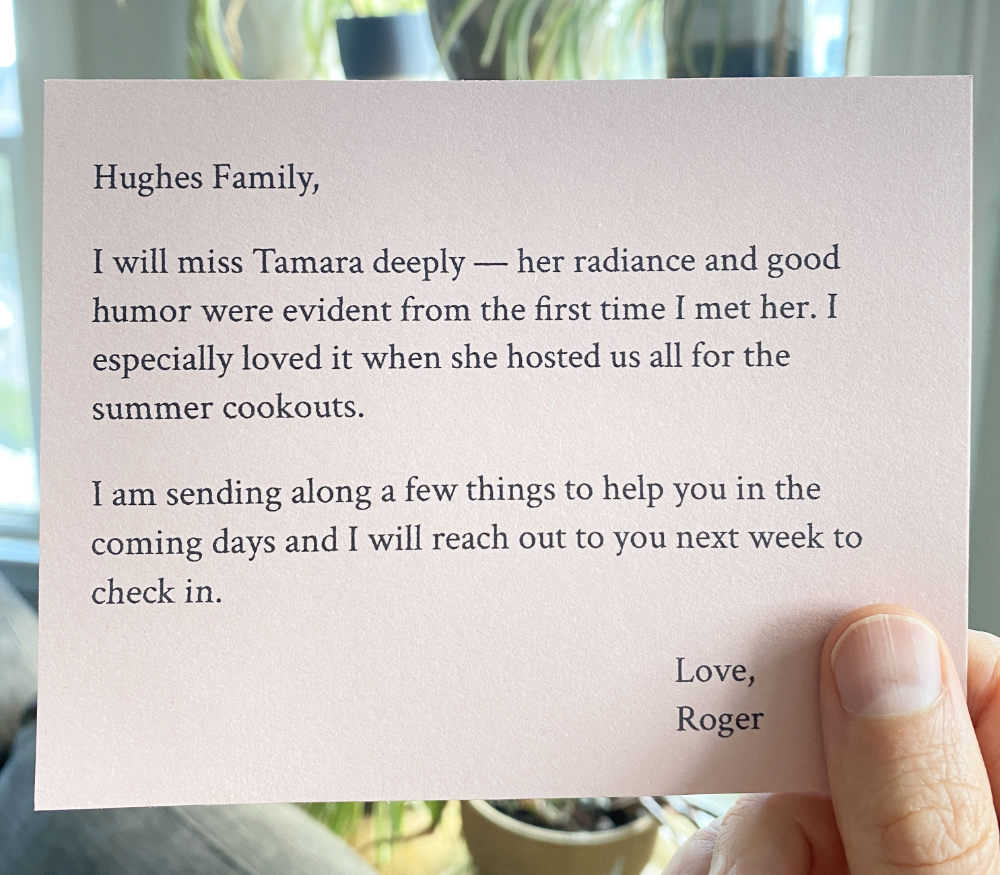 Hughes Family,
I will miss Tamara deeply — her radiance and good
humor were evident from the first time I met her. I
especially loved it when she hosted us all for the
summer cookouts.
I am sending along a few things to help you in the
coming days and I will reach out to you next week to
check in.
Love,
Roger